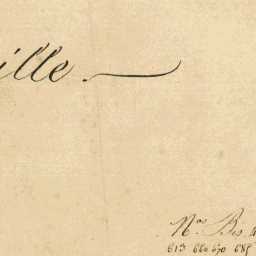 ille.
Nos. Bis
613 660 670 685